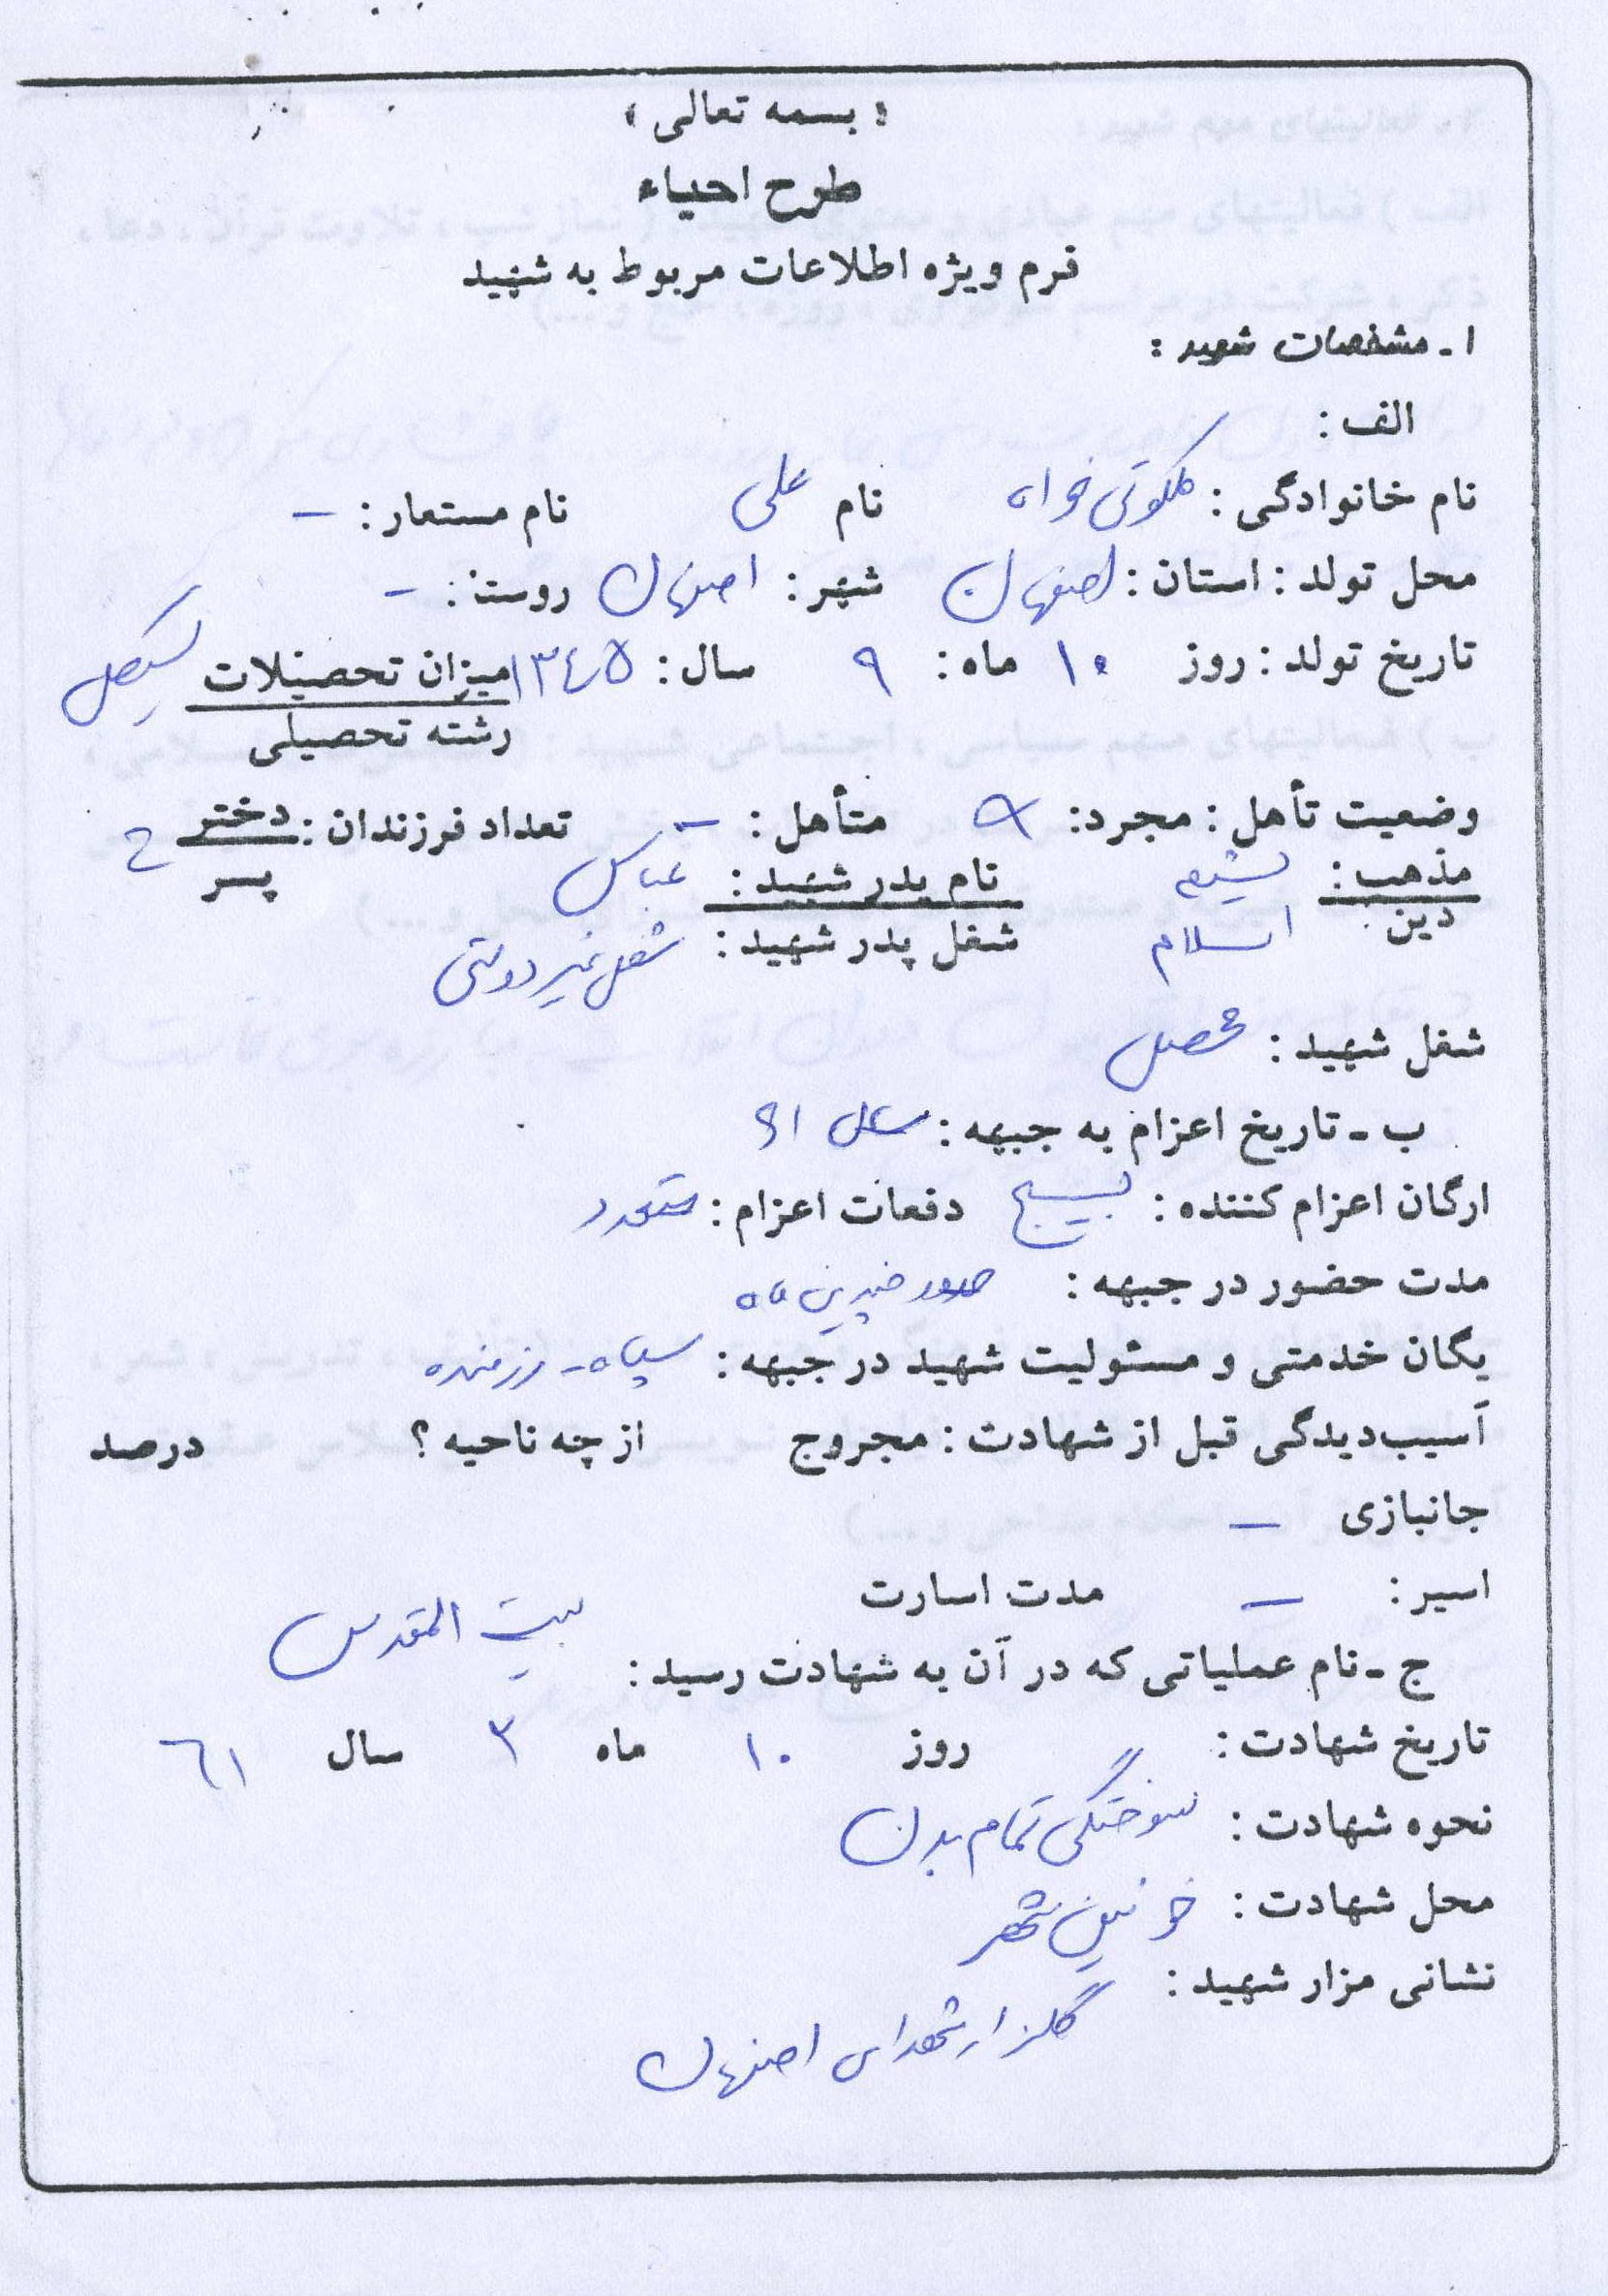 « بسمه تعالی »
طرح احیاء
فرم ویژه اطلاعات مربوط به شهید
۱ـ مشخصات شهید :
الف :
نام خانوادگی : ملکوتی خواه نام علی نام مستعار : –
محل تولد : استان : اصفهان شهر : اصفهان روستا : –
تاریخ تولد : روز ۱۰ ماه : ۹ سال : ۱۳۴۵ میزان تحصیلات سیکل
رشته تحصیلی
وضعیت تأهل : مجرد : متأهل : – تعداد فرزندان : دختر
پسر
مذهب : شیعه نام پدر شهید : عباس
دین اسلام شغل پدر شهید : شغل غیر دولتی
شغل شهید : محصل
ب ـ تاریخ اعزام به جبهه : سال ۶۱
ارگان اعزام کننده : بسیج دفعات اعزام : متعدد
مدت حضور در جبهه : حدود چندین ماه
یگان خدمتی و مسئولیت شهید در جبهه : سپاه - رزمنده
آسیب‌دیدگی قبل از شهادت : مجروح از چه ناحیه ؟ درصد
جانبازی –
اسیر : – مدت اسارت
ج ـ نام عملیاتی که در آن به شهادت رسید : بیت المقدس
تاریخ شهادت : روز ۱۰ ماه ۳ سال ۶۱
نحوه شهادت : سوختگی تمام بدن
محل شهادت : خونین شهر
نشانی مزار شهید :
گلزار شهدای اصفهان